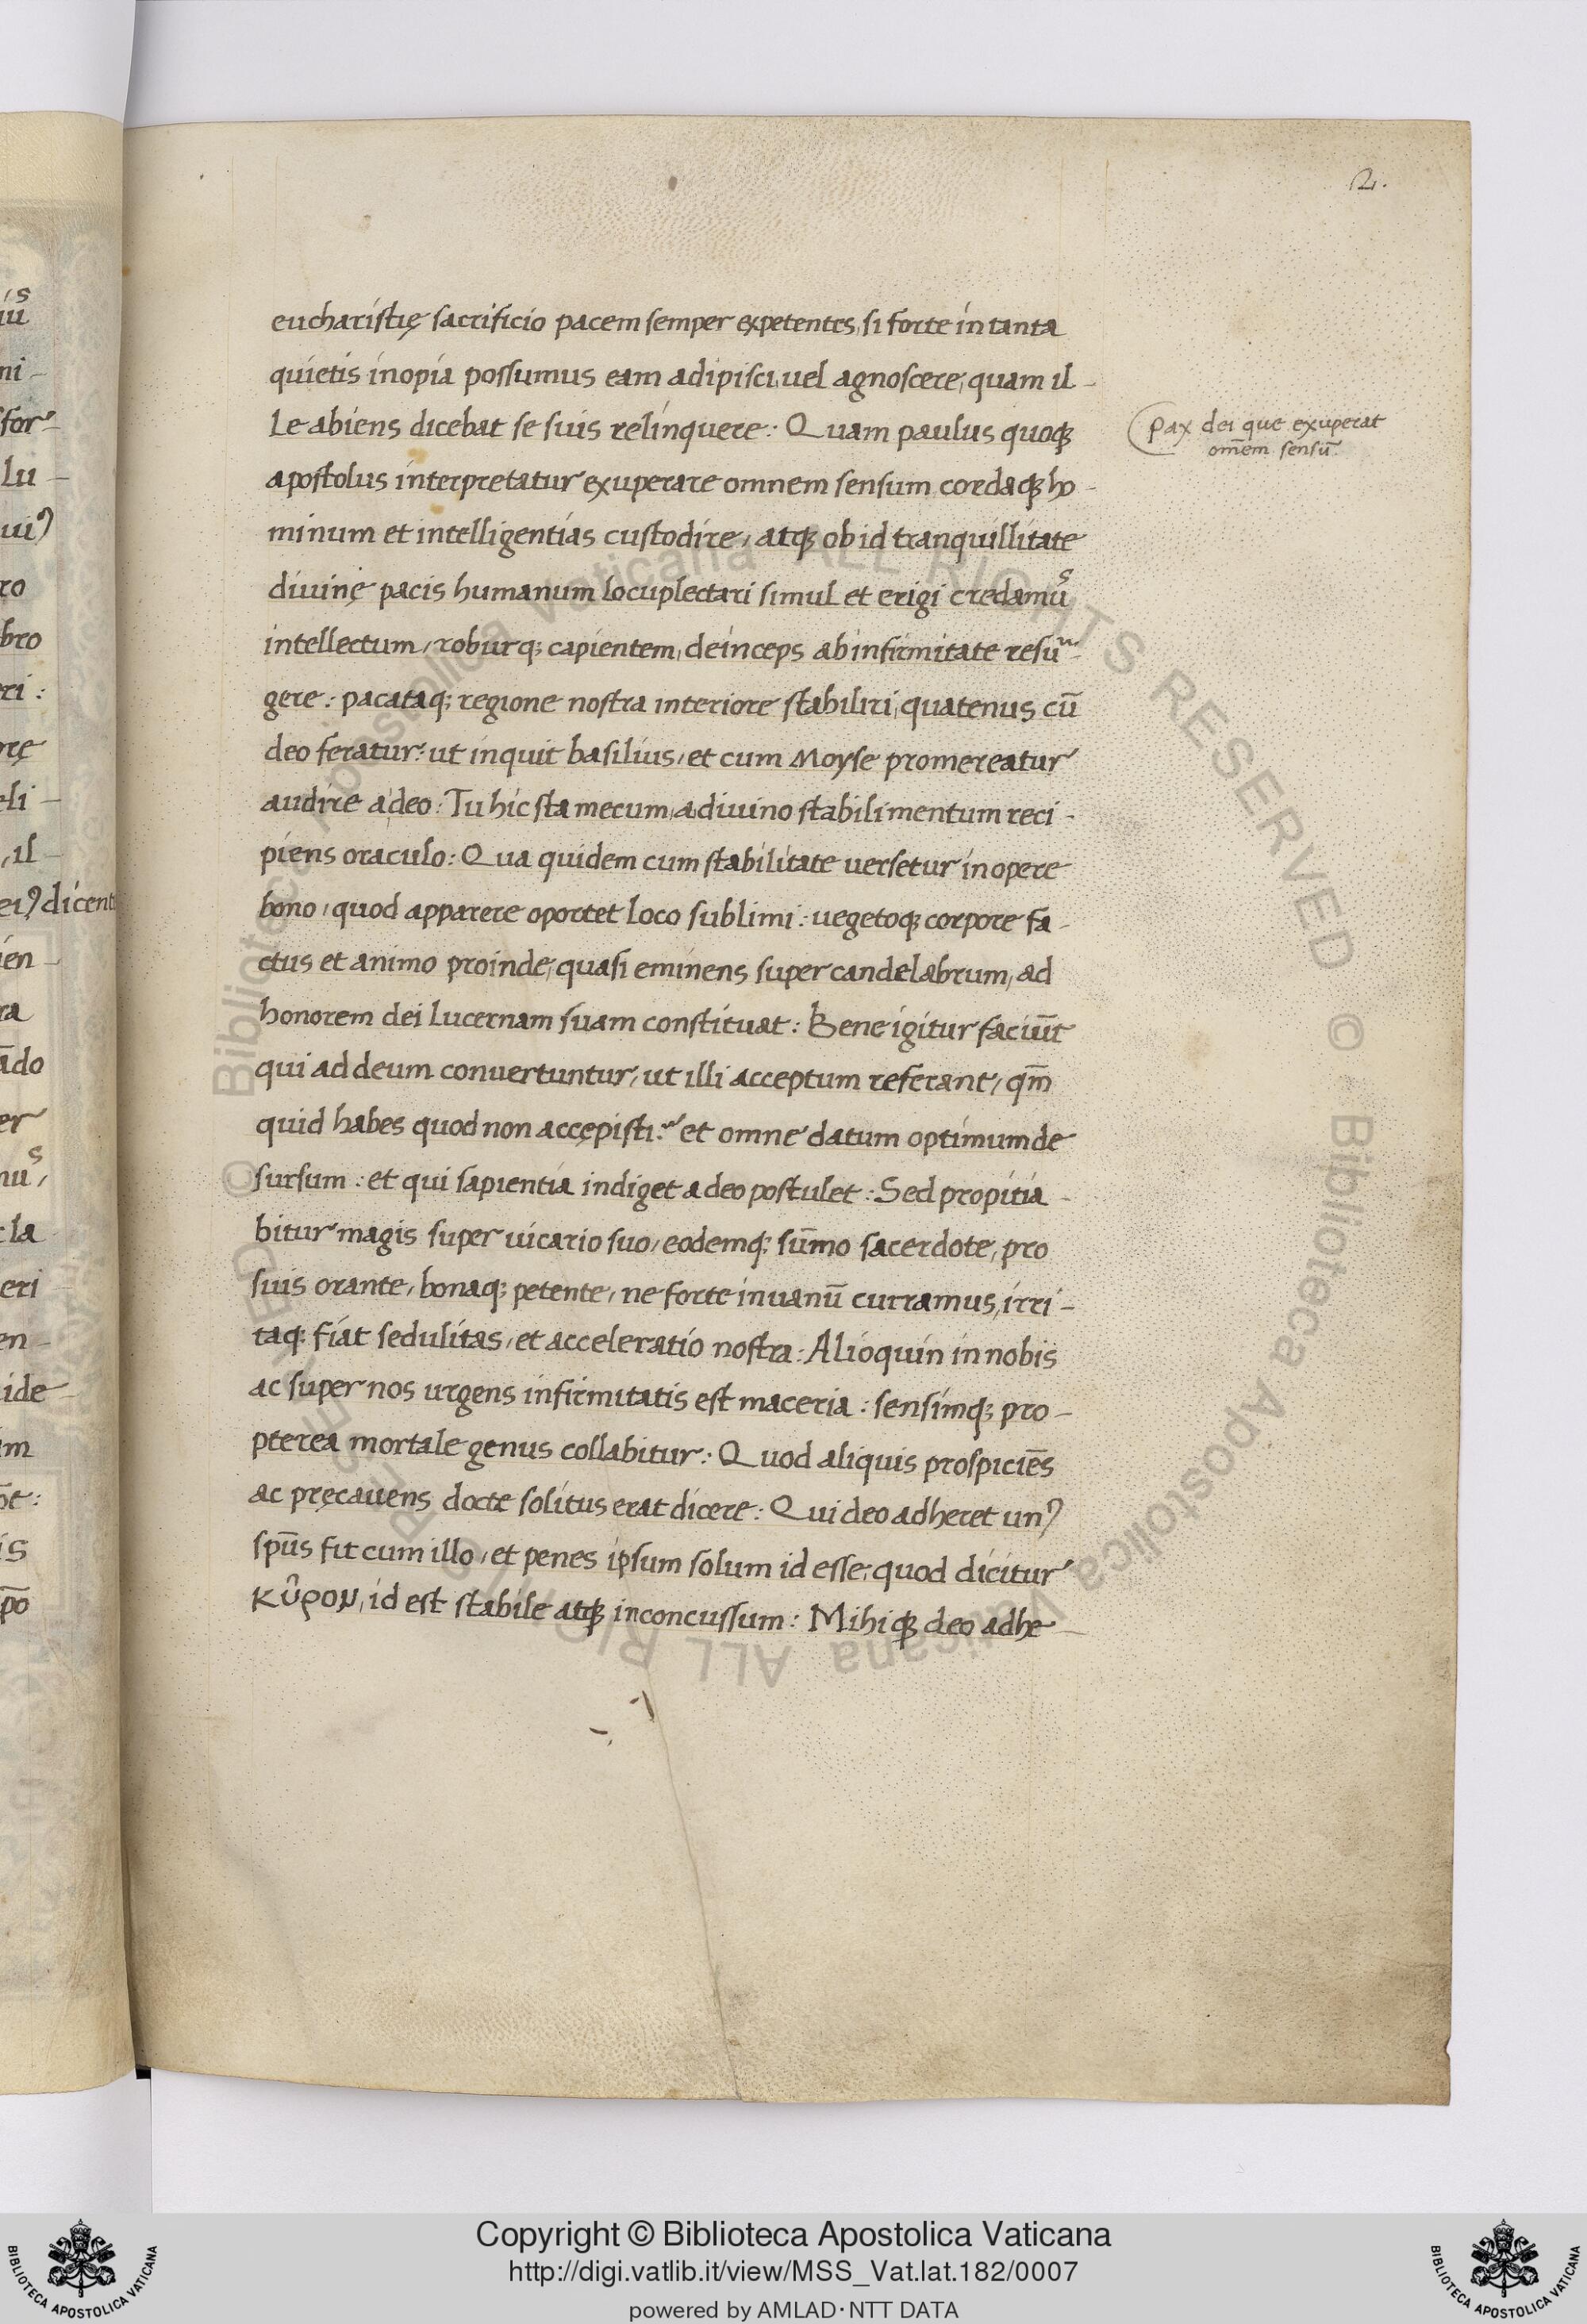 2.
eucharistię sacrificio pacem semper expetentes, si forte in tanta
quietis inopia possumus eam adipisci, uel agnoscere, quam il-
le abiens dicebat se suis relinquere: Quam paulus quoqꝫ
apostolus interpretatur exuperare omnem sensum cordaqꝫ ho-
minum et intelligentias custodire, atqꝫ ob id tranquillitate
diuinę pacis humanum locuplectari simul et erigi credamuˢ
intellectum, roburq; capientem, deinceps ab infirmitate resuʳ-
gere: pacataq; regione nostra interiore stabiliri, quatenus cū
deo feratur: ut inquit basilius, et cum Moyse promereatur
audire a deo: Tu hic sta mecum, a diuino stabilimentum reci-
piens oraculo: Qua quidem cum stabilitate uersetur in opere
bono, quod apparere oportet loco sublimi: uegetoqꝫ corpore fa-
ctus et animo proinde, quasi eminens super candelabrum, ad
honorem dei lucernam suam constituat: Bene igitur faciūt
qui ad deum conuertuntur, ut illi acceptum referant, qm̄
quid habes quod non accępisti? et omne datum optimum de
sursum: et qui sapientia indiget a deo postulet: Sed propitia-
bitur magis super uicario suo, eodemq; sūmo sacerdote, pro
suis orante, bonaq; petente, ne forte in uanū curramus, irri-
taq; fiat sedulitas, et acceleratio nostra: Alioquin in nobis
ac super nos urgens infirmitatis est maceria: sensimq; pro-
pterea mortale genus collabitur: Quod aliquis prospiciēs
ac pręcauens docte solitus erat dicere: Qui deo adheret unꝰ
sp̄us fit cum illo, et penes ipsum solum id esse, quod dicitur
κῦρον, id est stabile atqꝫ inconcussum: Mihiqꝫ deo adhe-
Pax dei que exuperat
om̄em sensū
is
iū
ni-
for-
lu-
uiꝰ
ro
bro
eri:
orę
eli-
,il-
eiꝰ dicent
ien-
ra
ādo
er
muˢ,
cla
eri
en-
ide
im
ōt:
is
p̄o
© Biblioteca Apostolica Vaticana ALL RIGHTS RESERVED © Biblioteca Apostolica Vaticana ALL RIGHTS RESERVED
Copyright © Biblioteca Apostolica Vaticana
http://digi.vatlib.it/view/MSS_Vat.lat.182/0007
powered by AMLAD·NTT DATA
BIBLIOTECA APOSTOLICA VATICANA
BIBLIOTECA APOSTOLICA VATICANA